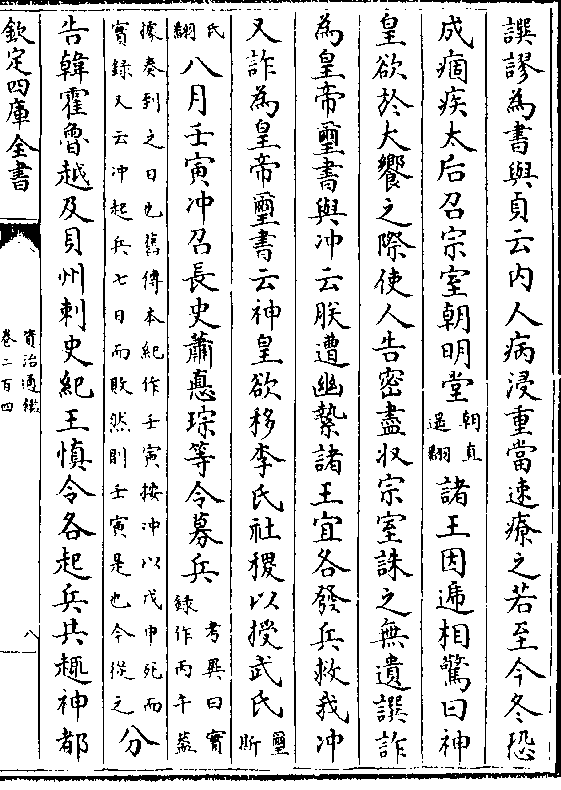 譔謬為書與貞云内人病浸重當速療之若至今冬恐
成痼疾太后召宗室朝明堂朝直遥翻諸王因遞相驚曰神
皇欲於大饗之際使人告密盡收宗室誅之無遺譔詐
為皇帝璽書與冲云朕遭幽縶諸王宜各發兵救我冲
又詐為皇帝璽書云神皇欲移李氏社稷以授武氏璽斯
氏翻八月壬寅冲召長史蕭悳琮等令募兵考異曰實録作丙午葢
據奏到之日也舊傳本紀作壬寅按冲以戊申死而實録又云冲起兵七日而敗然則壬寅是也今從之分
告韓霍魯越及貝州刺史紀王慎令各起兵共趣神都
欽定四庫全書
資治通鑑
卷二百四
八